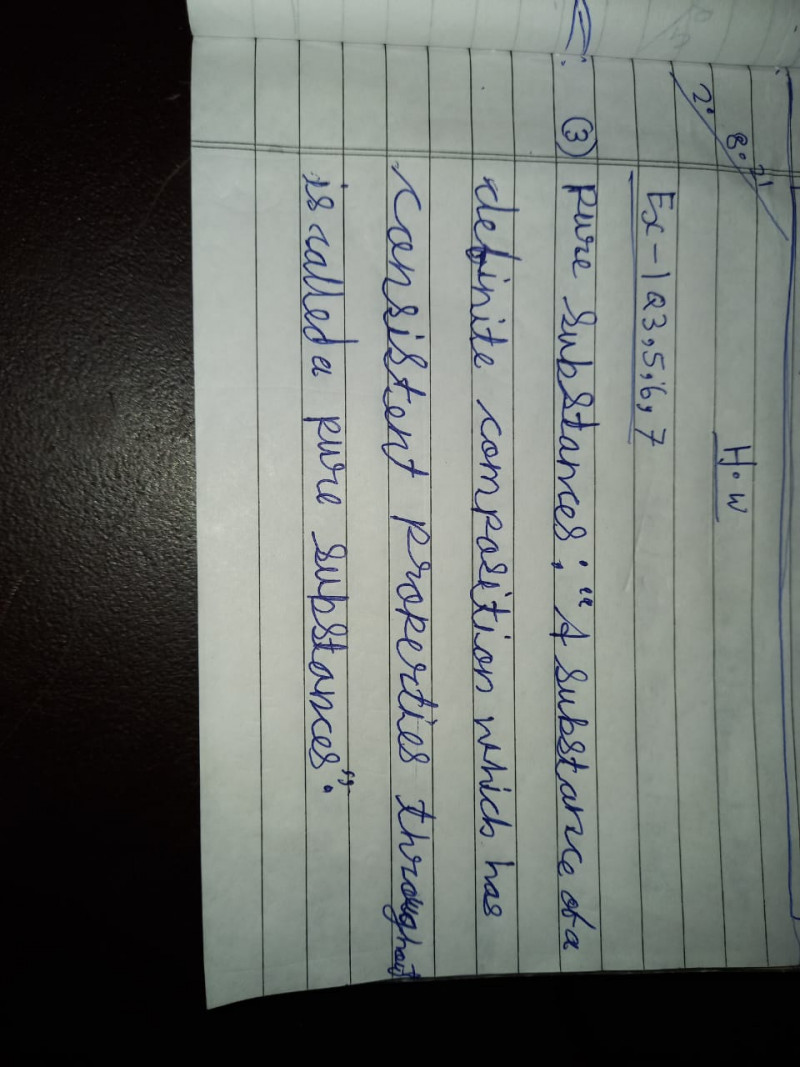 H.W
Ex-1 Q3,5,6,7
(3) Pure Substances: "A substance of a
definite composition which has
consistent properties throughout
is called a pure substances".